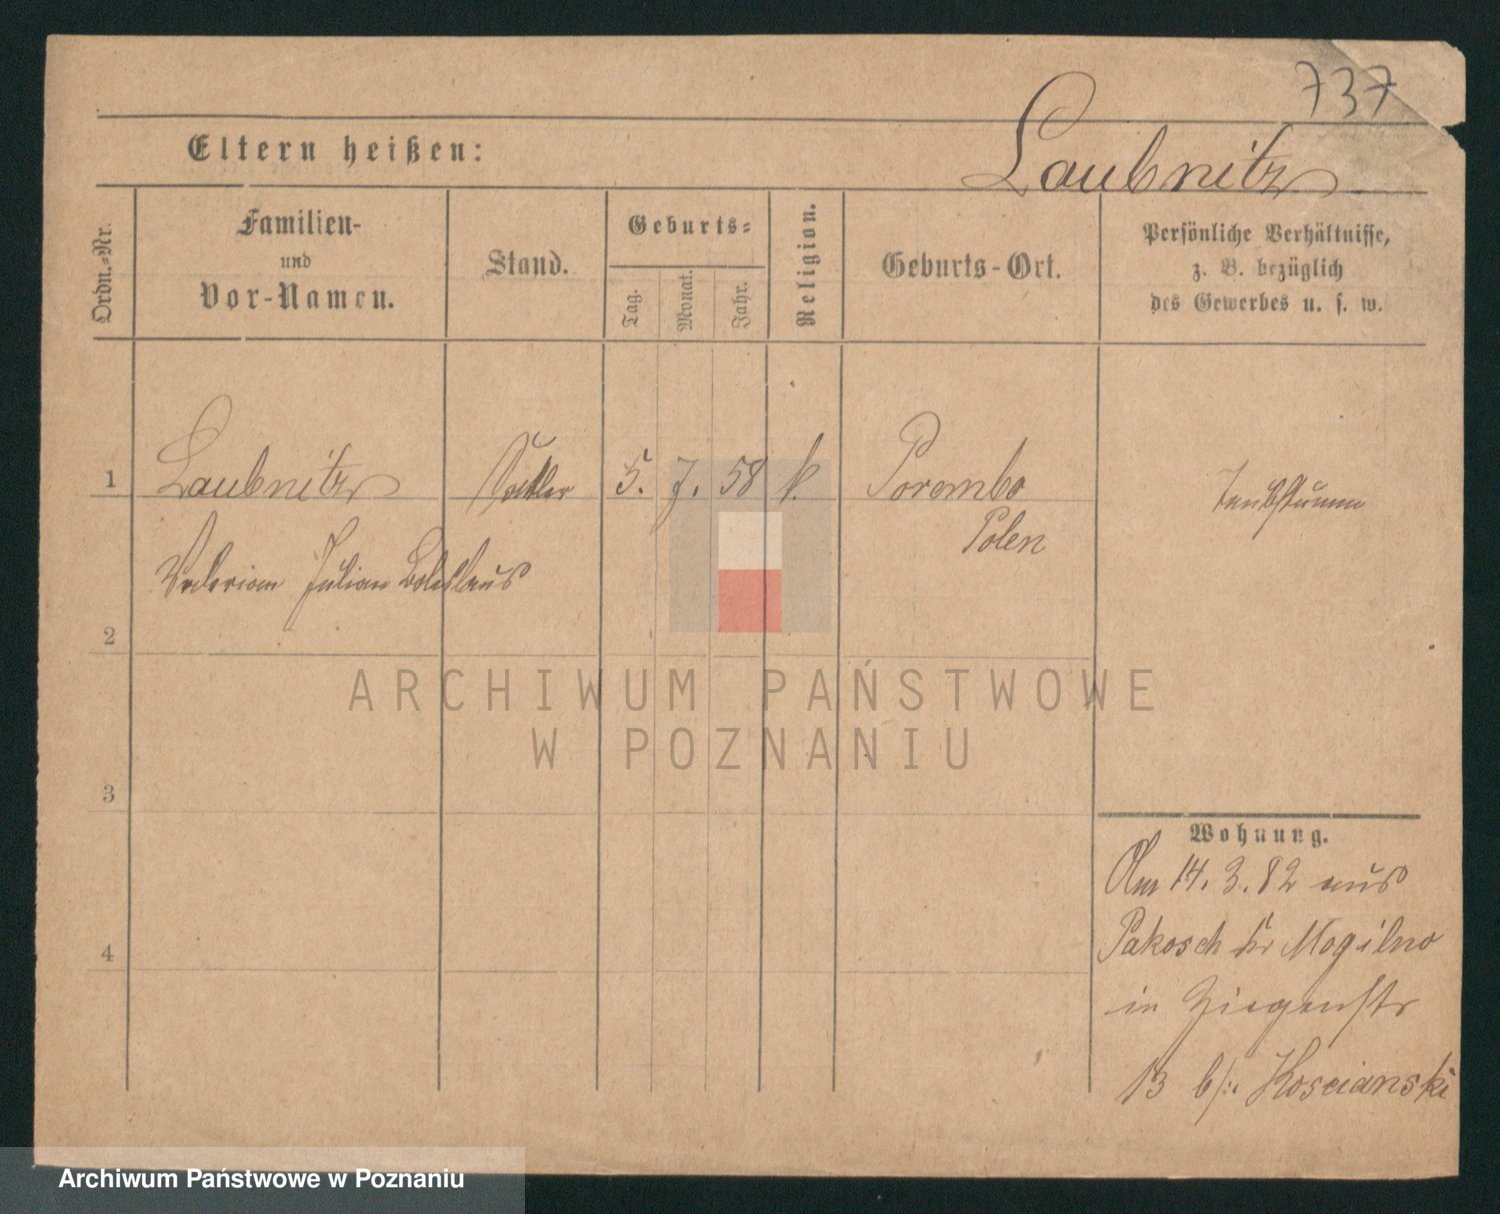 737
Laubnitz
Eltern heißen:
Ordn.-Nr.
Familien-
und
Vor-Namen.
Stand.
Geburts-
Tag.
Monat.
Jahr.
Religion.
Geburts-Ort.
Persönliche Verhältnisse,
z. B. bezüglich
des Gewerbes u. s. w.
1 Laubnitz Sattler 5. 7. 58 k. Porombo Taubstumm
Polen
Valerian Julian Boleslaus
2
ARCHIWUM PAŃSTWOWE
W POZNANIU
3
Wohnung.
Am 14. 3. 82 aus
Pakosch Kr Mogilno
4
in Ziegenstr
13 b/: Koscianski
Archiwum Państwowe w Poznaniu